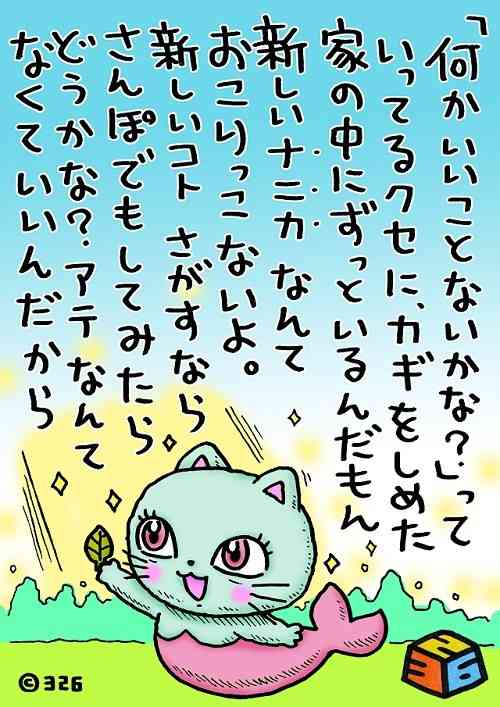 「何かいいことないかな？」って
いってるクセに、カギをしめた
家の中にずっといるんだもん
新しいナニカ なんて
おこりっこないよ。
新しいコト さがすなら
さんぽでもしてみたら
どうかな？アテなんて
なくていいんだから
326
©326